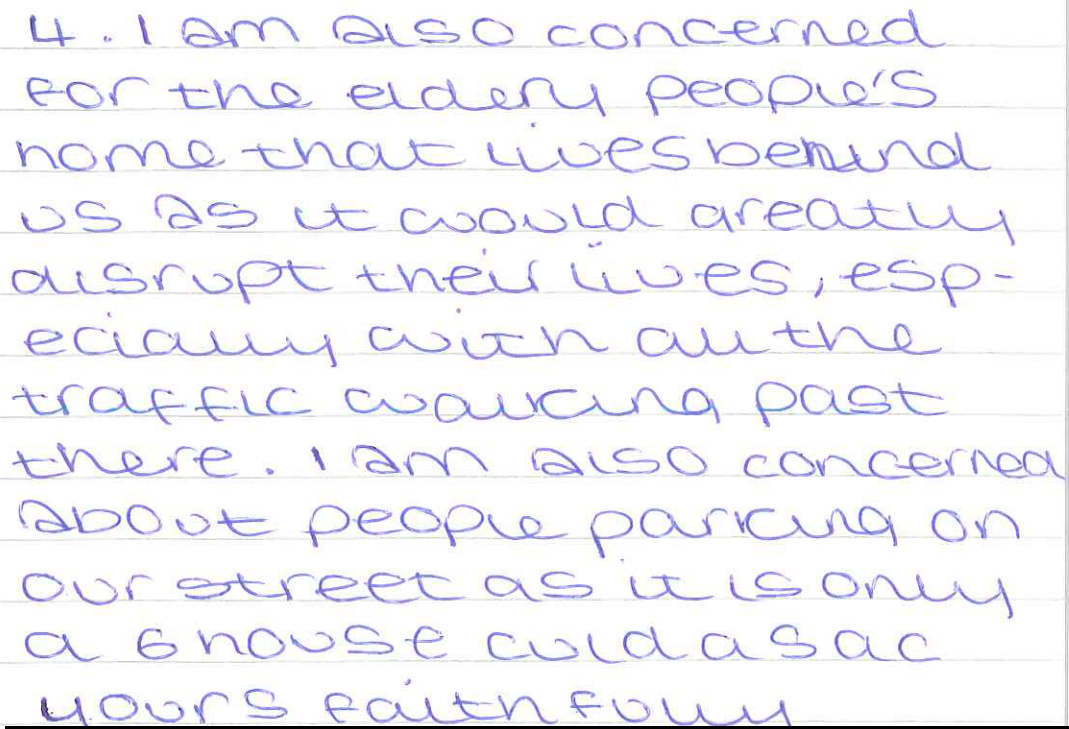 4. I am also concerned
for the eldery people's
home that lives behind
us as it would greatly
disrupt their lives, esp-
ecially with all the
traffic walking past
there. I am also concerned
about people parking on
our street as it is only
a 6 house culdasac
yours faithfully